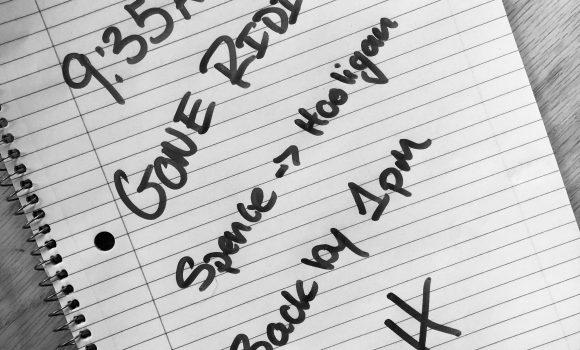 9:35
GONE RIDI
Spence -> Hooligan
Back by 1pm